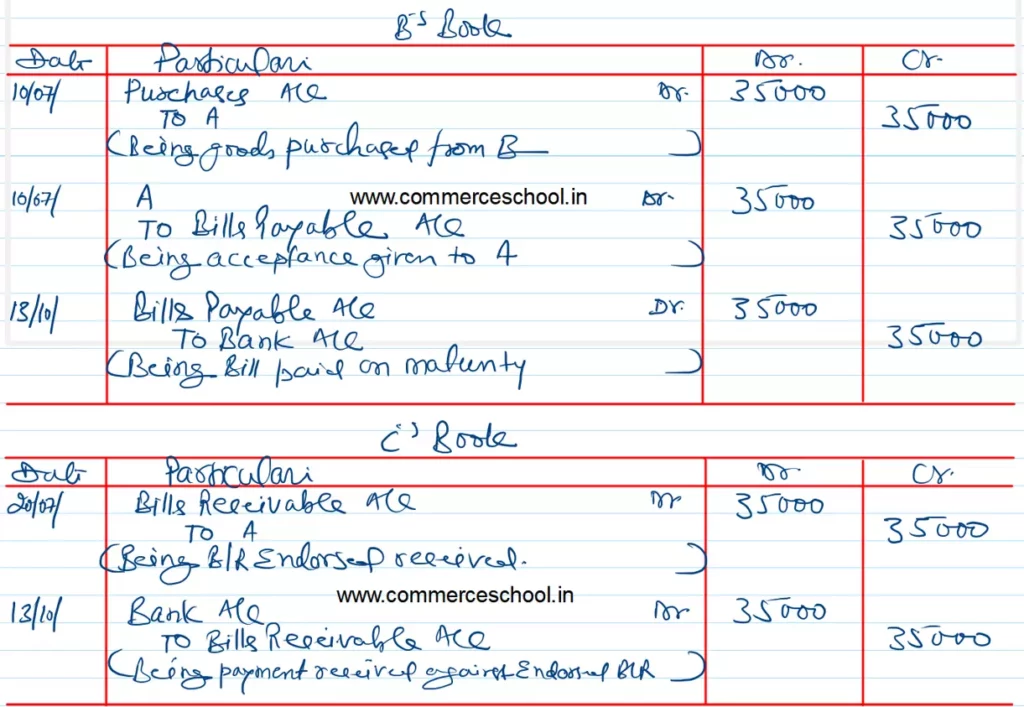 B's Book
Date Particulars Dr. Cr.
10/07/ Purchases A/C Dr. 35000
To A 35000
(Being goods purchased from B )
10/07/ A Dr. 35000
www.commerceschool.in
To Bills Payable A/C 35000
(Being acceptance given to A )
13/10/ Bills Payable A/C Dr. 35000
To Bank A/C 35000
(Being Bill paid on maturity )
C's Book
Date Particulars Dr Cr.
20/07/ Bills Receivable A/C Dr 35000
To A 35000
(Being B/R Endorsed received. )
www.commerceschool.in
13/10/ Bank A/C Dr 35000
To Bills Receivable A/C 35000
(Being payment received against Endorsed B/R )